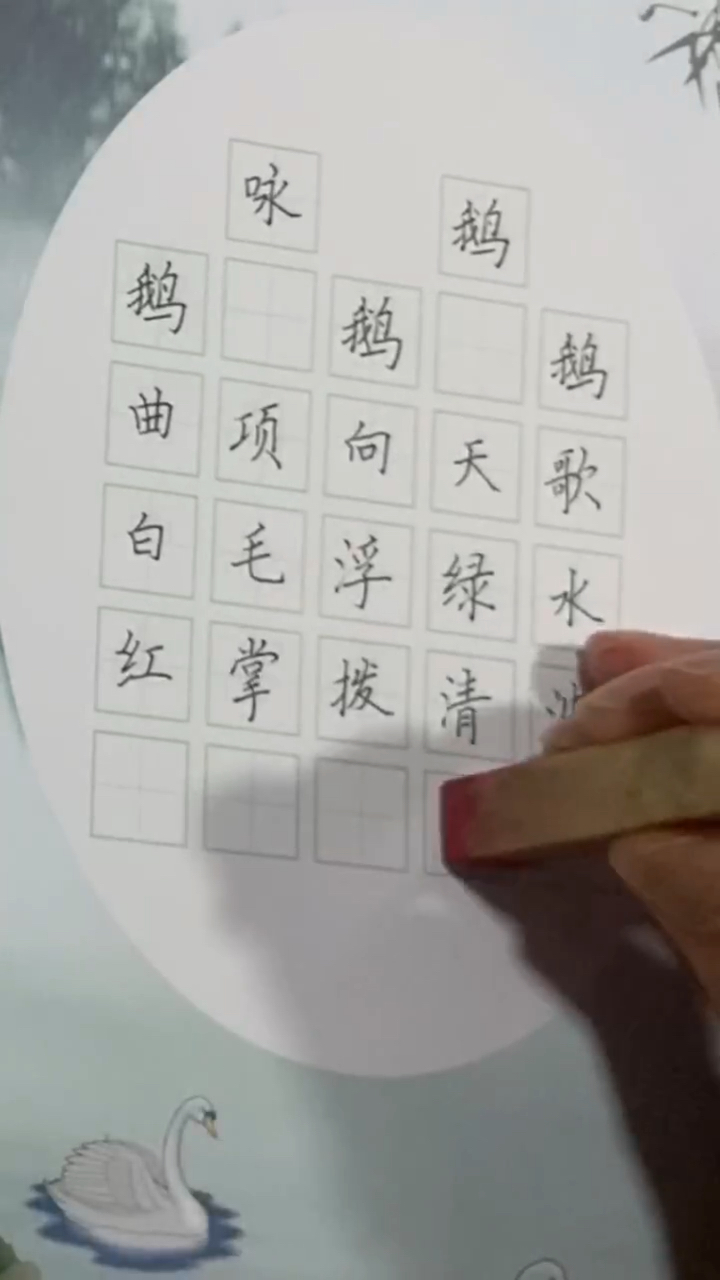 咏鹅
鹅鹅鹅
曲项向天歌
白毛浮绿水
红掌拨清